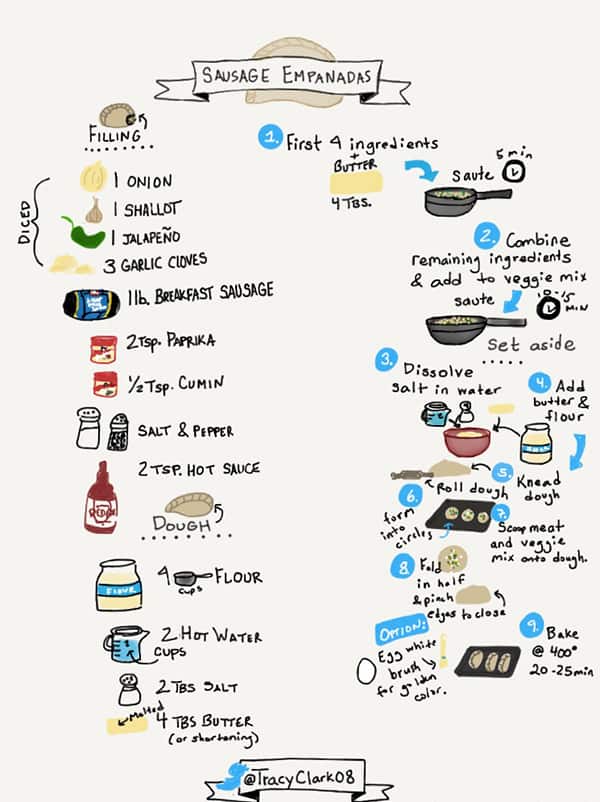 SAUSAGE EMPANADAS
FILLING
DICED
1 ONION
1 SHALLOT
1 JALAPEÑO
3 GARLIC CLOVES
1 lb. BREAKFAST SAUSAGE
2 Tsp. PAPRIKA
1/2 Tsp. CUMIN
SALT & PEPPER
2 TSP. HOT SAUCE
DOUGH
4 cups FLOUR
FLOUR
2 HOT WATER
CUPS
2 TBS SALT
Melted
4 TBS BUTTER
(or shortening)
1. First 4 ingredients
+
BUTTER
4 TBS.
saute
5 min
2. Combine
remaining ingredients
& add to veggie mix
saute
10-15
MIN
Set aside
3. Dissolve
salt in water
4. Add
butter &
flour
5. Knead
dough
Roll dough
6.
form
into
circles
7.
Scoop meat
and veggie
mix onto dough.
8. Fold
in half
& pinch
edges to close
OPTION:
Egg white
brush
for golden
color.
9. Bake
@ 400°
20-25 min
@TracyClark08